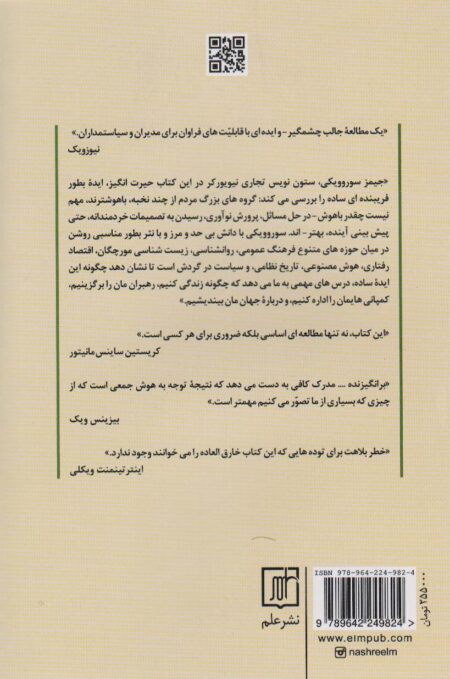 «یک مطالعهٔ جالب چشمگیر - و ایده ای با قابلیّت های فراوان برای مدیران و سیاستمداران.»
نیوزویک
«جیمز سوروویکی، ستون نویس تجاری نیویورکر در این کتاب حیرت انگیز، ایدهٔ بطور
فریبنده ای ساده را بررسی می کند: گروه های بزرگ مردم از چند نخبه، باهوشترند، مهم
نیست چقدر باهوش - در حل مسائل، پرورش نوآوری، رسیدن به تصمیمات خردمندانه، حتی
پیش بینی آینده، بهتر - اند. سوروویکی با دانش بی حد و مرز و با نثر بطور مناسبی روشن
در میان حوزه های متنوع فرهنگ عمومی، روانشناسی، زیست شناسی مورچگان، اقتصاد
رفتاری، هوش مصنوعی، تاریخ نظامی، و سیاست در گردش است تا نشان دهد چگونه این
ایدهٔ ساده، درس های مهمی به ما می دهد که چگونه زندگی کنیم، رهبران مان را برگزینیم،
کمپانی هایمان را اداره کنیم، و دربارهٔ جهان مان بیندیشیم.»
«این کتاب، نه تنها مطالعه ای اساسی بلکه ضروری برای هر کسی است.»
کریستین ساینس مانیتور
«برانگیزنده .... مدرک کافی به دست می دهد که نتیجهٔ توجه به هوش جمعی است که از
چیزی که بسیاری از ما تصوّر می کنیم مهمتر است.»
بیزینس ویک
«خطر بلاهت برای توده هایی که این کتاب خارق العاده را می خوانند وجود ندارد.»
اینترتینمنت ویکلی
ISBN 978-964-224-982-4
9 789642 249824
۲۵۵۰۰۰ تومان
نشر علم
www.elmpub.com
nashreelm